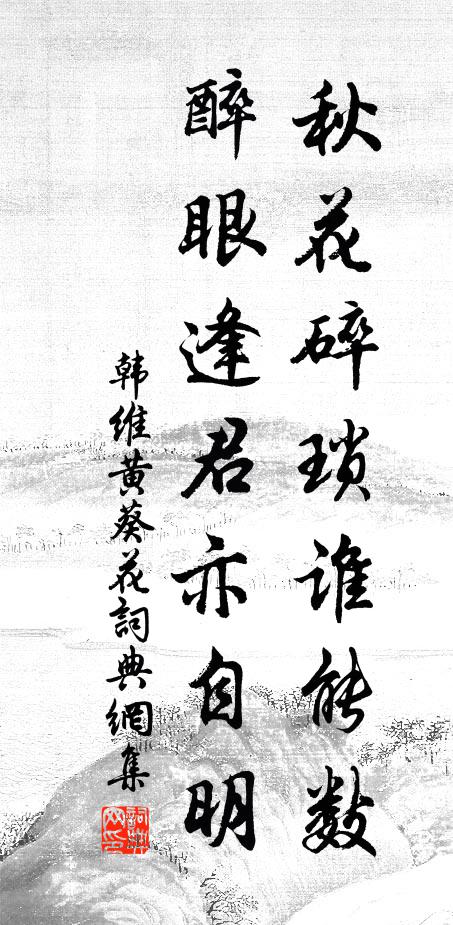 秋花碎琐谁能数
醉眼逢君亦自明
韩维黄葵花詞典網集